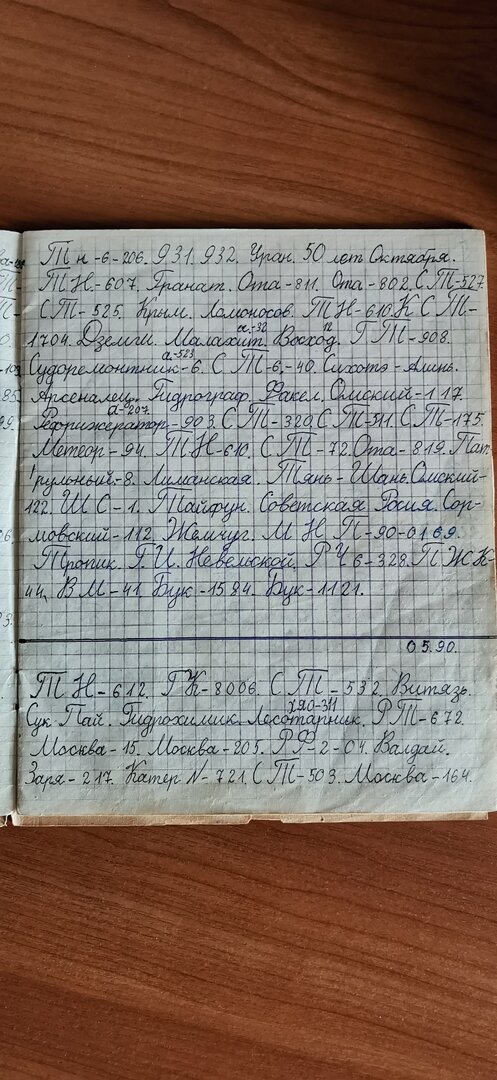 Тн-6-206. 931. 932. Уран. 50 лет Октября.
ТН-607. Гранат. Ота-811. Ота-802. СТ-527.
СТ-525. Крым. Ломоносов. ТН-610. К СТ-
а.-32 12
1704. Дземги. Малахит. Восход. ГТ-908.
а-523
Судоремонтник-6. СТ-6,-40. Сихотэ-Алинь.
Арсеналец. Гидрограф. Факел. Омский-117.
а-207
Рефрижератор-903. СТ-320. СТ-511. СТ-175.
Метеор-94. ТН-610. СТ-72. Ота-819. Пат-
рульный-8. Лиманская. Тянь-Шань. Омский-
122. ШС-1. Тайфун. Советская Росия. Сор-
мовский-112. Жемчуг. МНП-90-0169.
Тропик. Г. И. Невельской. РЧ 6-328. ПЖК-
44. ВМ-41. Бук-1584. Бук-1121.
05.90.
ТН-612. ГК-8006. СТ-532. Витязь.
хяо-311
Сук Пай. Гидрохимик. Лесотарник. РТ-672.
Москва-15. Москва-205. РФ-2-04. Валдай.
Заря-217. Катер N-721. СТ-503. Москва-164.